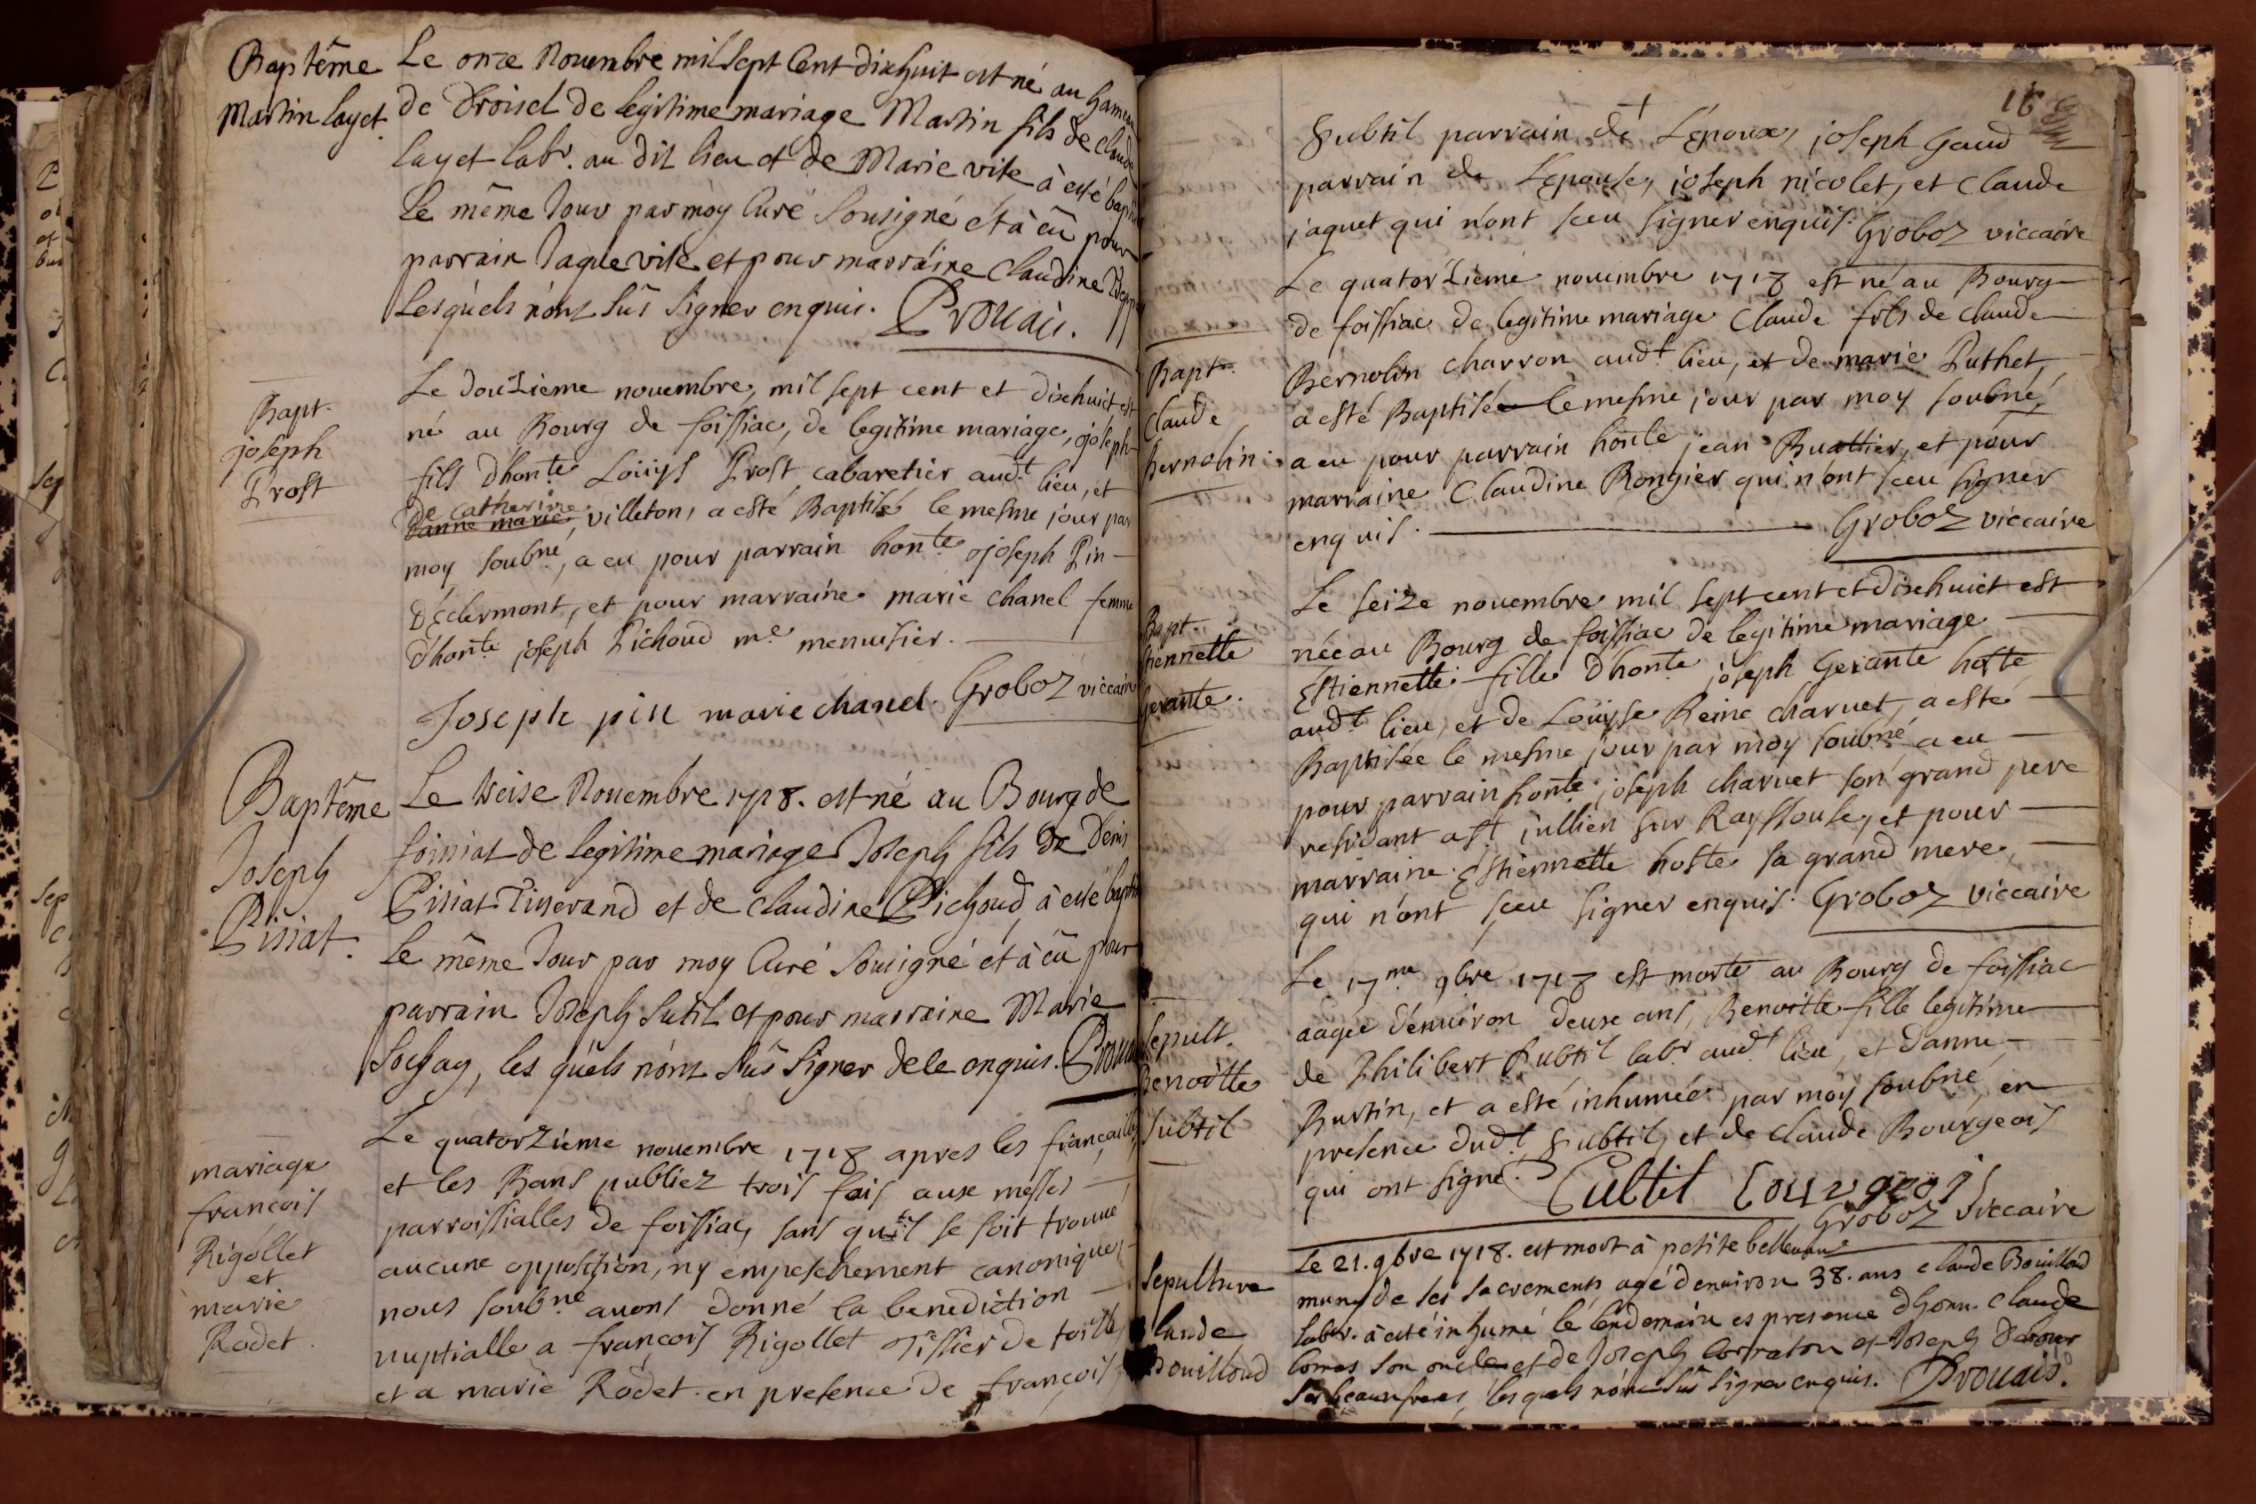 Baptême
Martin layet.
Le onze Nouembre mil Sept Cent dixhuit est né au hameau
de droisel de legitime mariage Martin fils de claude
layet labr. au dit lieu et de Marie vite à esté baptisé
le même Jour par môy Curé Sousigné et à eü pour
parrain Jaque vite et pour marraine Claudine
Lesquels n'ont sûs signer enquis. Provais.
Bapt.
joseph
Prost
Le douzieme nouembre, mil sept cent et dixhuict est
né au Bourg de foissiac, de legitime mariage, joseph
fils d'honte Loüys Prost, cabaretier audt lieu, et
de catherine
danne marie, villeton, a esté Baptisé le mesme jour par
moy soubné, a eu pour parrain honte joseph Pin
D'Eclermont, et pour marraine marie chanel femme
d'honte joseph Pichoud me menuisier.
Joseph pin marie chanel. Groboz viccaire
Baptême
Joseph
Pissiat.
Le treise Nouembre 1718. est né au Bourg de
foissiat de legitime mariage Joseph fils de Denis
Pissiat Tisserand et de claudine Pichoud à esté baptisé
le même Jour par moy Curé Sousigné et à eü pour
parrain Joseph Sutil et pour marraine Marie
Sochay, les quels n'ont sûs signer de le enquis. Provais
mariage
francois
Rigollet
et
marie
Rodet.
Le quatorzieme nouembre 1718 apres les fiancailles
et les Bans publiez trois fois aux messes
parroissialles de foissiac, sans qu'il se soit trouué
aucune opposition, ny empeschement canonique,
nous soubné auons donné la benediction
nuptialle a francois Rigollet Tissier de toille
et a marie Rodet. en presence de francois
16
Subtil parrain de L'Epoux, joseph Gaud
parrain de L'Epouse, joseph nicolet, et claude
jaquet qui n'ont sceu signer enquis. Groboz viccaire
Bapt.
Claude
bernolin.
Le quatorzieme nouembre 1718 est né au Bourg
de foissiac de legitime mariage Claude fils de claude
Bernolin charron audt lieu, et de marie Puthet,
a esté Baptisé le mesme jour par moy soubné,
a eu pour parrain honte jean Buattier, et pour
marraine Claudine Rongier qui n'ont sceu signer
enquis. Groboz viccaire
Bapt.
Etiennette
Gerante.
Le seize nouembre mil sept cent et dixhuict est
née au Bourg de foissiac de legitime mariage
Estiennette fille d'honte joseph Gerante hoste
audt lieu, et de Loüyse Reine charuet, a esté
Baptisée le mesme jour par moy soubné a eu
pour parrain honte joseph charuet son grand pere
residant a st jullien sur Rayssouse, et pour
marraine Estiennette hoste sa grand mere,
qui n'ont sceu signer enquis. Groboz viccaire
Sepult.
Benoitte
Subtil
Le 17me 9bre 1718 est morte au Bourg de foissiac
aagée d'enuiron deux ans, Benoitte fille legitime
de Philibert Subtil labr audt lieu, et d'anne
Burtin, et a esté inhumée par moy soubné, en
presence dudt Subtil, et de claude Bourgeois
qui ont signé. Subtil Bourgeois
Groboz Viccaire
Sepulture
Claude
Bouilloud
Le 21. 9bre 1718. est mort à petite belleuaure
muny de ses sacrements agé d'enuiron 38. ans claude Bouilloud
labr. à esté inhumé le lendemain es presence d'honn. Claude
Comas son oncle et de Joseph Corraton et Joseph
Ses beauxfreres, lesquels n'ont sûs signer enquis. Provais.